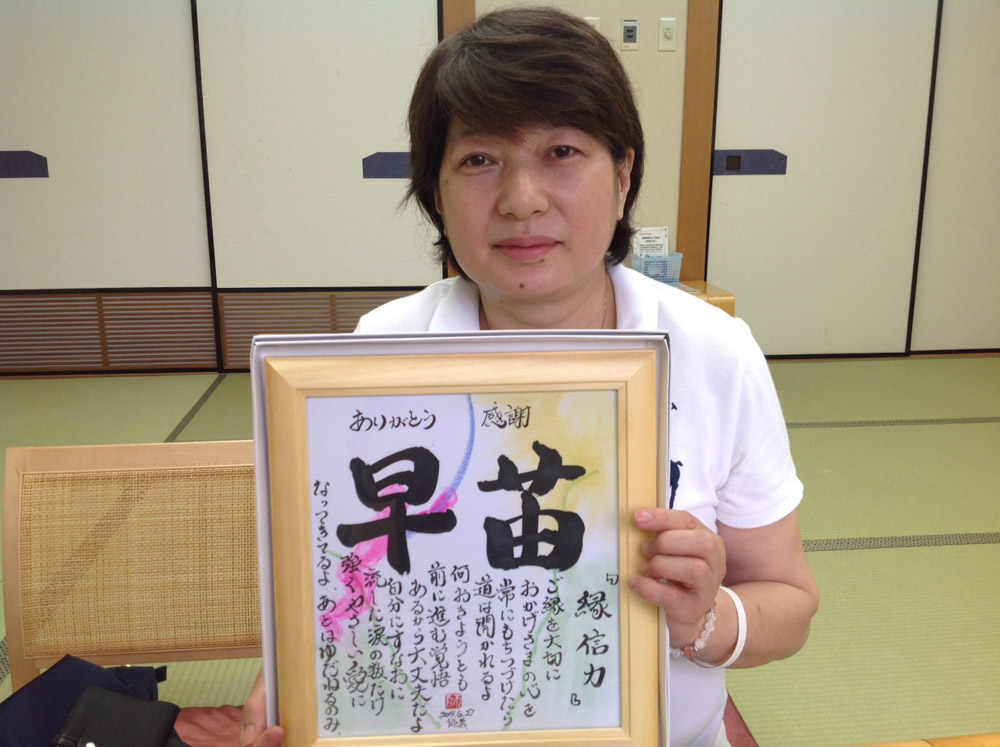 ありがとう 感謝
早苗
『縁信力』
ご縁を大切に
おかげさまの心を
常にもちつづけたら
道は開かれるよ
何おきようとも
前に進む覚悟
あるから大丈夫だよ
自分にすなおに
流した涙の数だけ
強くやさしい愛に
なってきてるよ あとはゆだねるのみ.